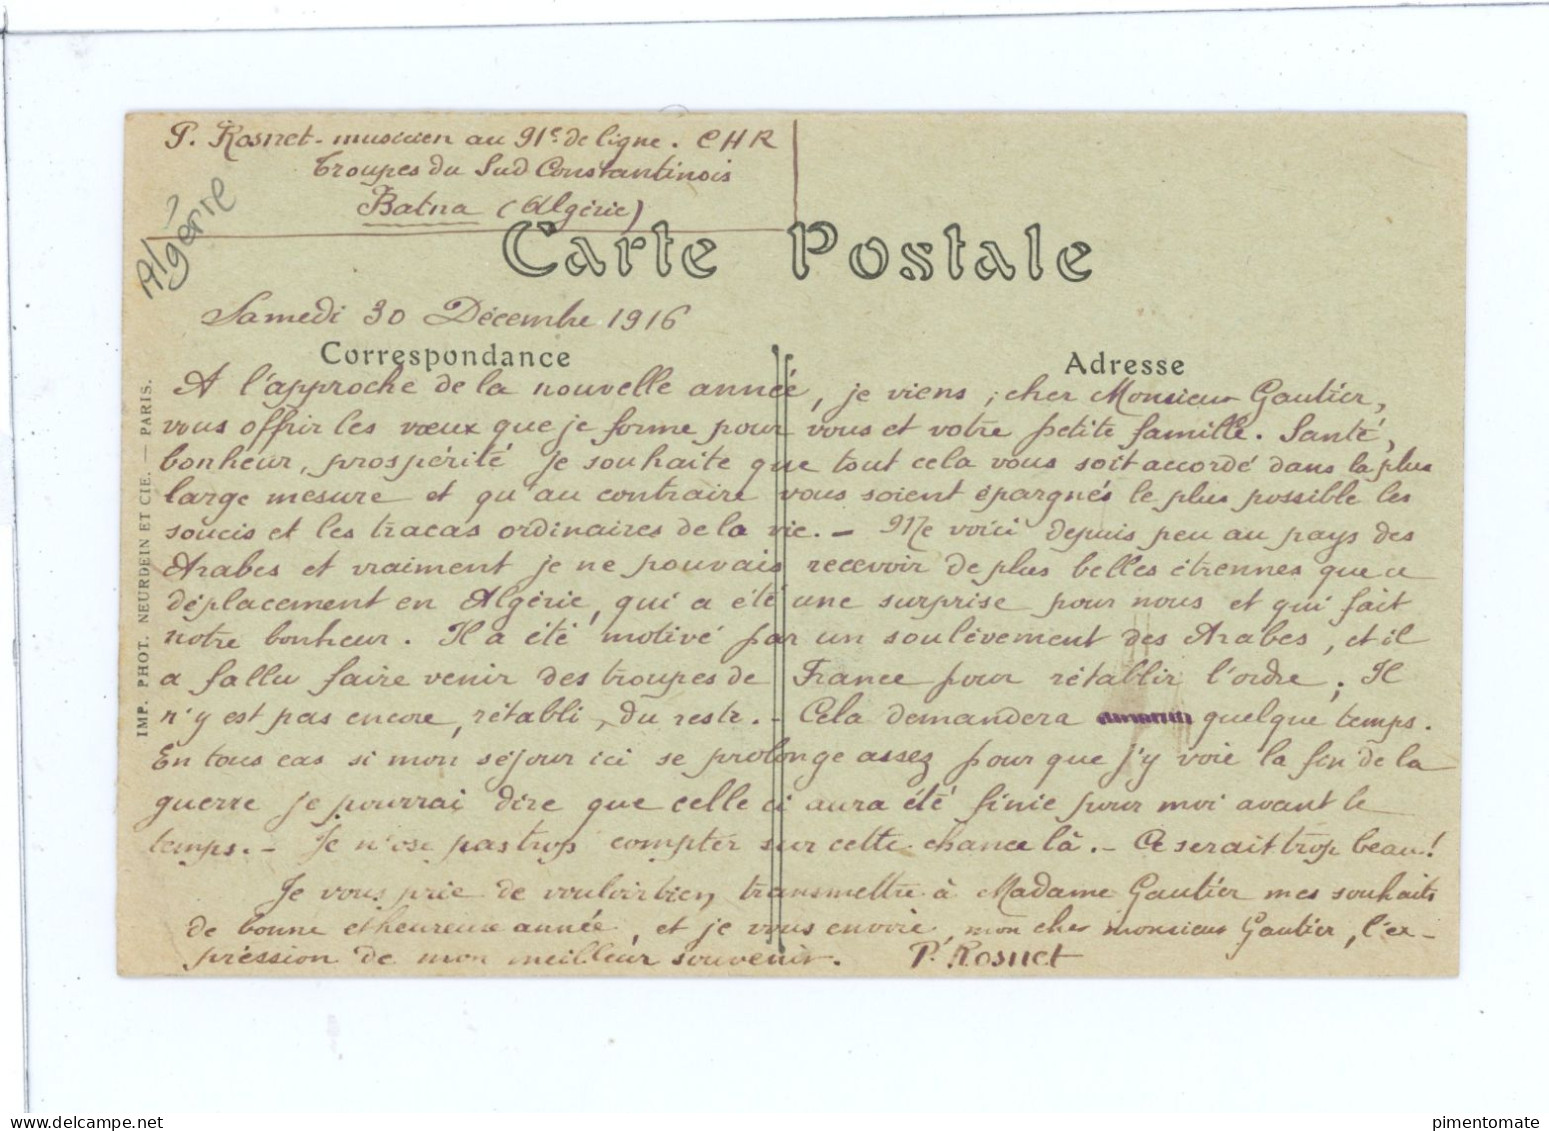 P. Rosnet - musicien au 91e de ligne. CHR
Troupes du Sud Constantinois
Batna (Algérie)
Algérie
Carte Postale
Samedi 30 Décembre 1916
Correspondance
Adresse
A l'approche de la nouvelle année, je viens, cher Monsieur Gautier,
vous offrir les vœux que je forme pour vous et votre petite famille. Santé,
bonheur, prospérité je souhaite que tout cela vous soit accordé dans la plus
large mesure et qu'au contraire vous soient épargnés le plus possible les
soucis et les tracas ordinaires de la vie. - Me voici depuis peu au pays des
Arabes et vraiment je ne pouvais recevoir de plus belles étrennes que ce
déplacement en Algérie, qui a été une surprise pour nous et qui fait
notre bonheur. Il a été motivé par un soulèvement des Arabes, et il
a fallu faire venir des troupes de France pour rétablir l'ordre; Il
n'y est pas encore, rétabli, du reste. - Cela demandera quelque temps.
En tous cas si mon séjour ici se prolonge assez pour que j'y voie la fin de la
guerre je pourrai dire que celle ci aura été finie pour moi avant le
temps. - Je n'ose pas trop compter sur cette chance là. - Ce serait trop beau!
Je vous prie de vouloir bien transmettre à Madame Gautier mes souhaits
de bonne et heureuse année, et je vous envoie, mon cher monsieur Gautier, l'ex-
pression de mon meilleur souvenir. P. Rosnet
IMP. PHOT. NEURDEIN ET CIE. — PARIS.
pimentomate